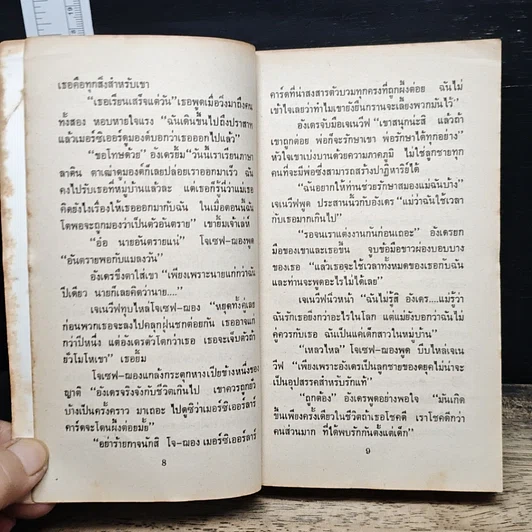 เธอคือทุกสิ่งสำหรับเขา
"เธอเรียนเสร็จแต่วัน" เธอพูดเมื่อวิ่งมาถึงคน
ทั้งสอง หอบหายใจแรง "ฉันเดินขึ้นไปถึงปราสาท
แล้วเมร์ซิเออร์ดูมองต์บอกว่าเธอออกไปแล้ว"
"ขอโทษด้วย" อังเดรยิ้ม "วันนี้เราเรียนภาษา
ลาติน ตาเฒ่าดูมองต์ก็เลยปล่อยเราออกมาเร็ว ฉัน
คงไปรับเธอที่หมู่บ้านแล้วละ แต่เธอก็รู้ว่าแม่เธอ
คิดยังไงเรื่องให้เธอออกมากับฉัน ในเมื่อตอนนี้ฉัน
โตพอจะถูกมองว่าเป็นตัวอันตราย" เขายิ้มเจ้าเล่ห์
"อ๋อ นายอันตรายแน่" โจเซฟ-ฌองพูด
"อันตรายพอกับแมลงวัน"
อังเดรขึงตาใส่เขา "เพียงเพราะนายแก่กว่าฉัน
ปีเดียว นายก็เลยคิดว่านาย...."
เจเนวีฟทุบไหล่โจเซฟ-ฌอง "หยุดทั้งคู่เลย
ก่อนพวกเธอจะลงไปคลุกฝุ่นชกต่อยกัน เธออาจแก่
กว่าปีหนึ่ง แต่อังเดรตัวโตกว่าเธอ เธอจะเจ็บตัวถ้า
ยั่วโมโหเขา" เธอยิ้ม
โจเซฟ-ฌองแกล้งกระตุกหางเปียข้างหนึ่งของ
ญาติ "อังเดรจริงจังกับชีวิตเกินไป เขาควรถูกยั่ว
บ้างเป็นครั้งคราว มาเถอะ ไปดูซิว่าเมร์ซิเออร์ลารี
คาร์ดจะโดนผึ้งต่อยมั้ย"
"อย่าร้ายกาจนักสิ โจ-ฌอง เมอร์ซิเออร์ลารี่
8
คาร์ดที่น่าสงสารตัวบวมทุกครั้งที่ถูกผึ้งต่อย ฉันไม่
เข้าใจเลยว่าทำไมเขายังขืนกรานจะเลี้ยงพวกมันไว้"
อังเดรจับมือเจเนวีฟ "เขาสนุกน่ะสิ แล้วถ้า
เขาถูกต่อย พ่อก็จะรักษาเขา พ่อรักษาได้ทุกอย่าง"
หัวใจเขาเบ่งบานด้วยความภาคภูมิ ไม่ใช่ลูกชายทุก
คนที่จะมีพ่อซึ่งสามารถสร้างปาฏิหาริย์ได้
"ฉันอยากให้ท่านช่วยรักษาสมองแม่ฉันบ้าง"
เจเนวีฟพูด ประสานนิ้วกับอังเดร "แม่ว่าฉันใช้เวลา
กับเธอมากเกินไป"
"รอจนเราแต่งงานกันก่อนเถอะ" อังเดรยก
มือของเขาและเธอขึ้น จูบข้อมือขาวผ่องบอบบาง
ของเธอ "แล้วเธอจะใช้เวลาทั้งหมดของเธอกับฉัน
และท่านจะพูดอะไรไม่ได้เลย"
เจเนวีฟนิ่วหน้า "ฉันไม่รู้สิ อังเดร....แม่รู้ว่า
ฉันรักเธอยิ่งกว่าอะไรในโลก แต่แม่ยังบอกว่าฉันไม่
คู่ควรกับเธอ ฉันเป็นแค่เด็กสาวในหมู่บ้าน"
"เหลวไหล" โจเซฟ-ฌองพูด บีบไหล่เจเน
วีฟ "เพียงเพราะอังเดรเป็นลูกชายของดยุคไม่น่าจะ
เป็นอุปสรรคสำหรับรักแท้"
"ถูกต้อง" อังเดรพูดอย่างพอใจ "มันเกิด
ขึ้นเพียงครั้งเดียวในชีวิตถ้าเธอโชคดี เราโชคดีกว่า
คนส่วนมาก ที่ได้พบรักกันตั้งแต่เด็ก"
9